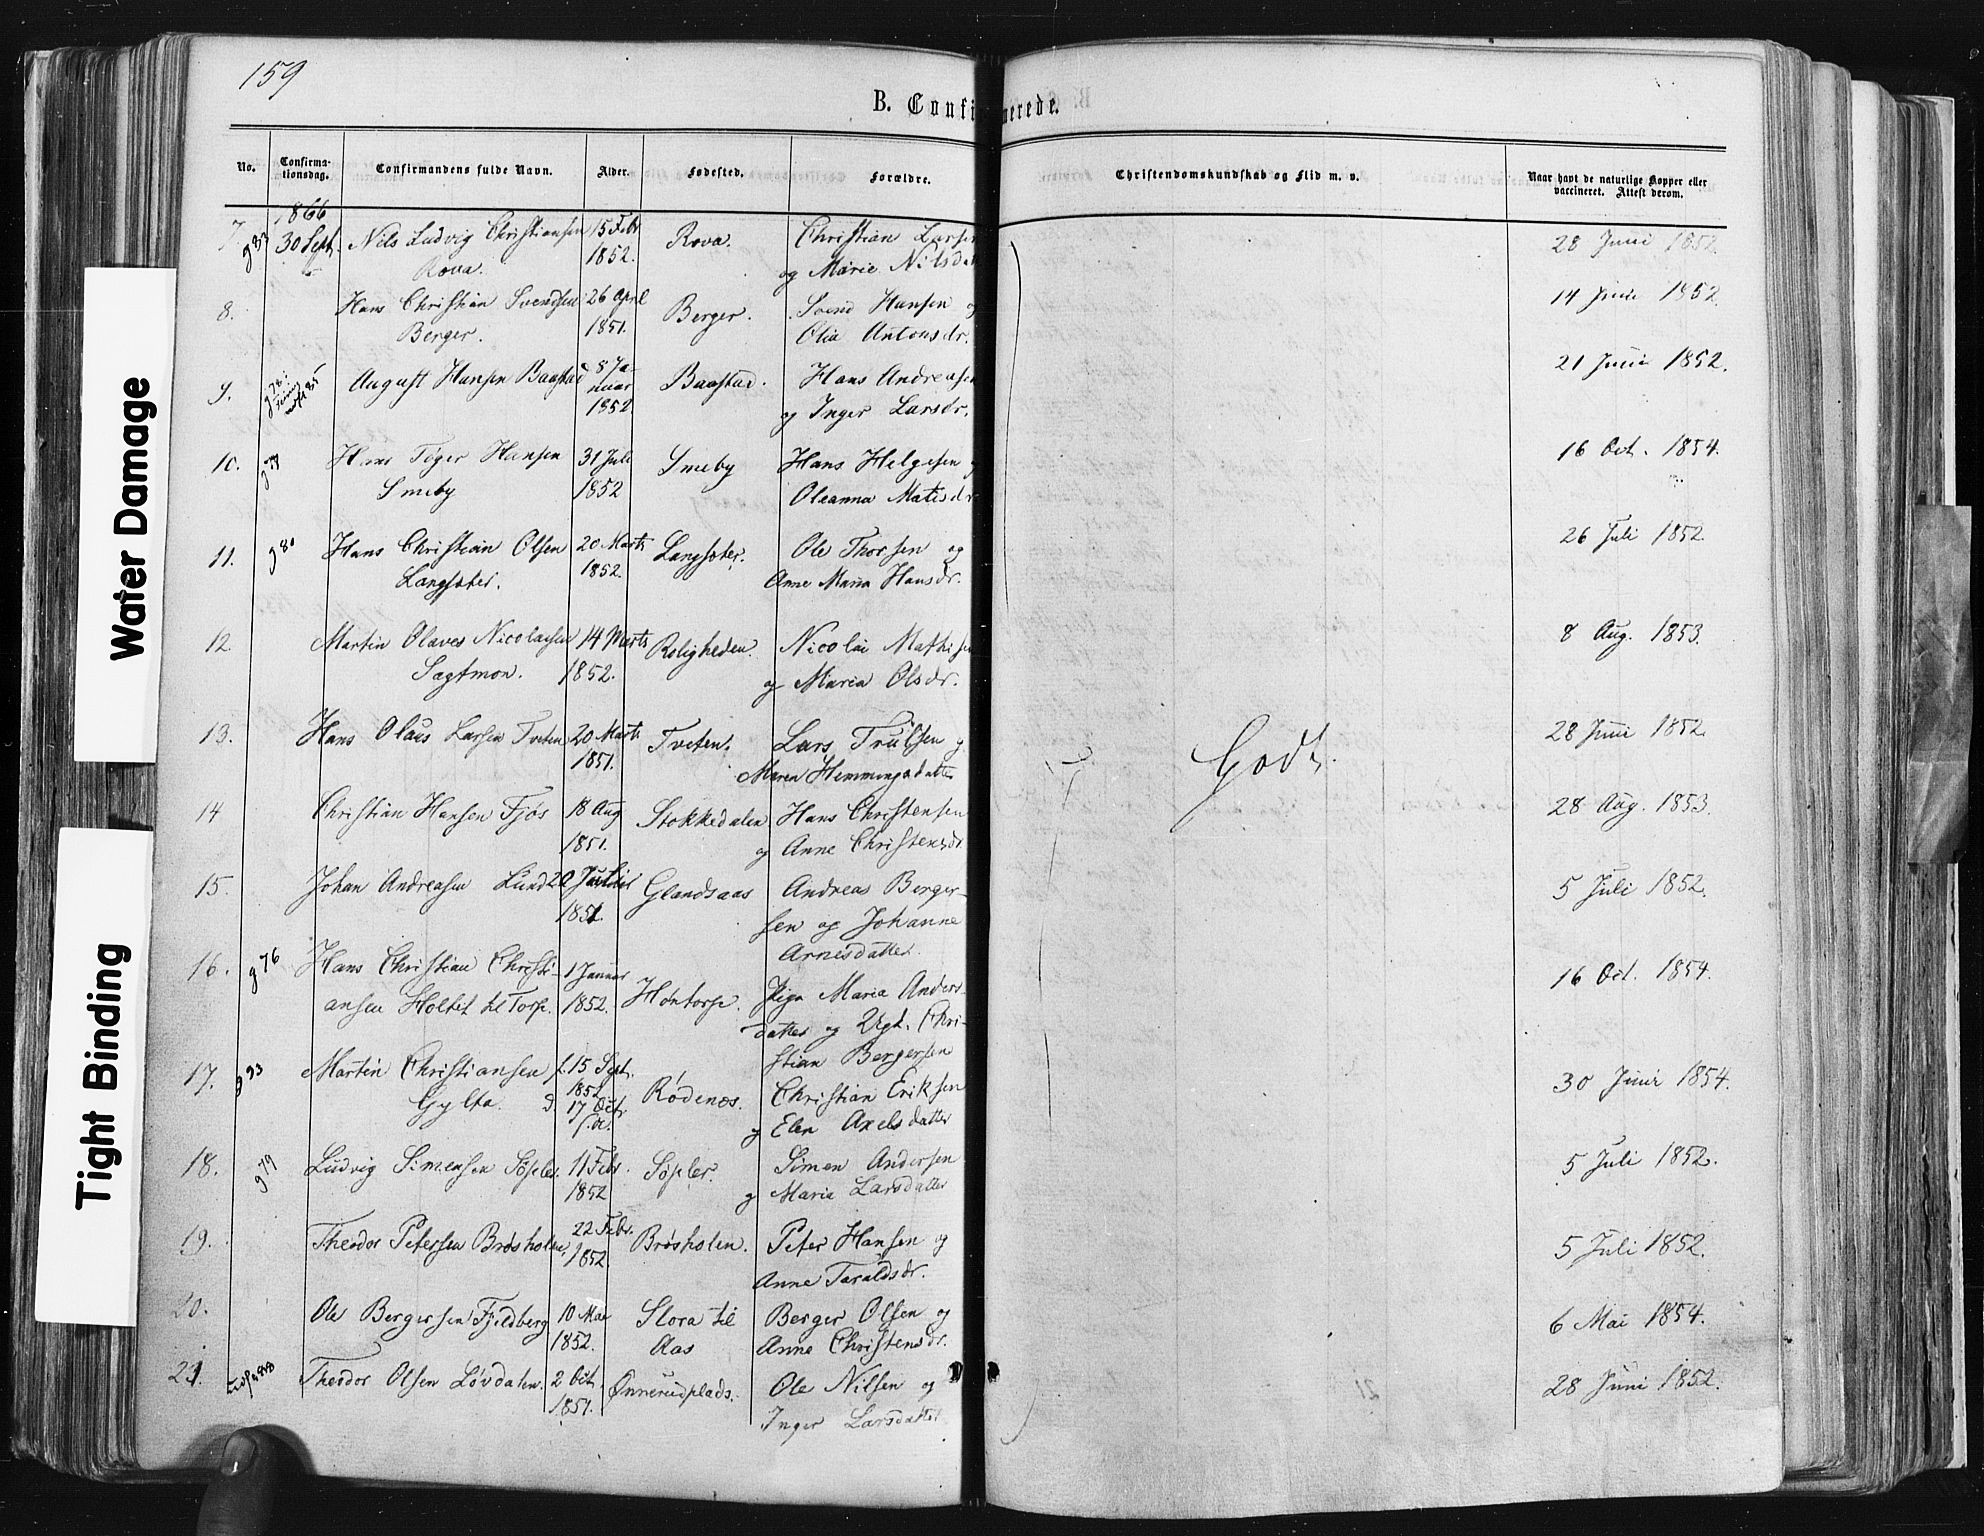 159
B. Confirmerede.
No. Confirmationsdag. Confirmandens fulde Navn. Alder. Fødested. Forældre. Christendomskundskab og Flid m. v. Naar havt de naturlige Kopper eller vaccineret. Attest derom.
1866
7. g 83 30 Sept. Nils Ludvig Christiansen 15 Febr Rova. Christian Larsen 28 Juni 1852.
Rova. 1852. og Marie Nilsdat
8. Hans Christian Svendsen 26 April Berger. Svend Hansen og 14 Juni 1852.
Berger. 1851. Olia Antonsdr.
9. August Hansen Baastad 8 Ja- Baastad. Hans Andreasen 21 Juni 1852.
nuar og Inger Larsdr.
1852.
10. Hans Hansen 31 Juli Smeby Hans Helgesen og 16 Oct. 1854.
Smeby 1852 Oleanna Matisdr
11. g 80 Hans Christian Olsen 20 Marts Langsæter. Ole Thorsen og 26 Juli 1852.
Langsæter. 1852. Anne Maria Hansdr.
12. Martin Olaves Nicolaisen 14 Marts Roligheden. Nicolai Mathisen 8 Aug. 1853.
Sagtmon. 1852. og Maria Olsdr.
13. Hans Olaus Larsen Tveten 20 Marts Tveten. Lars Trulsen og 28 Juni 1852.
1851. Maren Hemmingsdatter
Godt.
14 Christian Hansen Fjøs 18 Aug Stokkedalen Hans Christensen 28 Aug. 1853.
1851. og Anne Christensdr
15. Johan Andreasen Lund 20 Glandsaas Andreas Berger- 5 Juli 1852.
1851. sen og Johanne
Arnesdatter.
16. g 76 Hans Christian Christi- 1 Januar Høntorp. Pige Maria Anders- 16 Oct. 1854.
ansen Holtet til Torp. 1852. datter og Ugt. Chri-
stian Bergersen
17. g 93 Martin Christiansen f. 15 Sept. Rødenæs. Christian Eriksen 30 Juni 1854.
Gylta. d. 1852 17 Oct. og Elen Axelsdatter
18. g 79 Ludvig Simensen Søpler. 11 Febr. Søpler. Simen Andersen 5 Juli 1852.
1852 og Maria Larsdatter
19. Theodor Petersen Brøsholen, 22 Febr. Brøsholen. Peter Hansen og 5 Juli 1852.
1852. Anne Taraldsdr.
20. Ole Bergersen Fjeldberg 10 Mai Slora til Berger Olsen og 6 Mai 1854.
1852. Aas Anne Christensdr.
21. Theodor Olsen Løvdalen. 2 Oct. Ønnerudplads. Ole Nilsen og 28 Juni 1852.
1851. Inger Larsdatter
Water Damage
Tight Binding